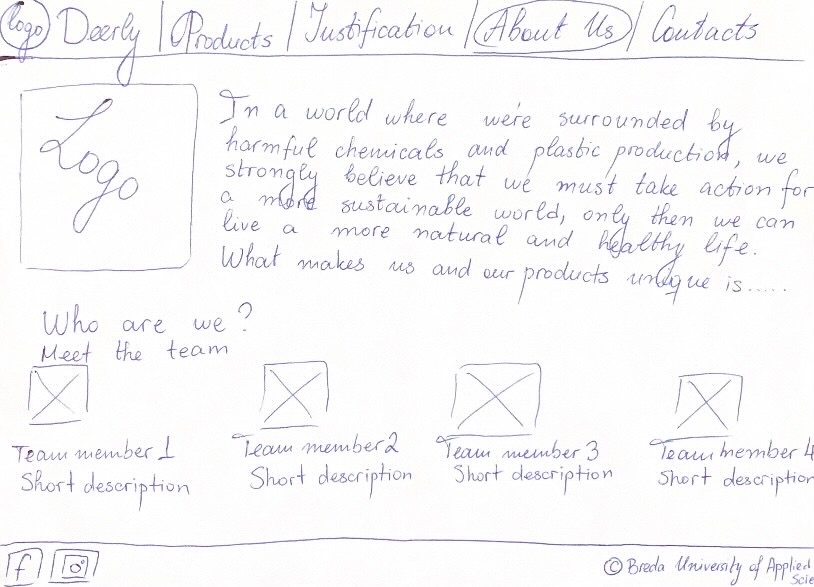 logo Deerly | Products | Justification | About Us | Contacts
Logo
In a world where we're surrounded by
harmful chemicals and plastic production, we
strongly believe that we must take action for
a more sustainable world, only then we can
live a more natural and healthy life.
What makes us and our products unique is.....
Who are we?
Meet the team
Team member 1
Short description
Team member 2
Short description
Team member 3
Short description
Team member 4
Short description
f
© Breda University of Applied
Scie